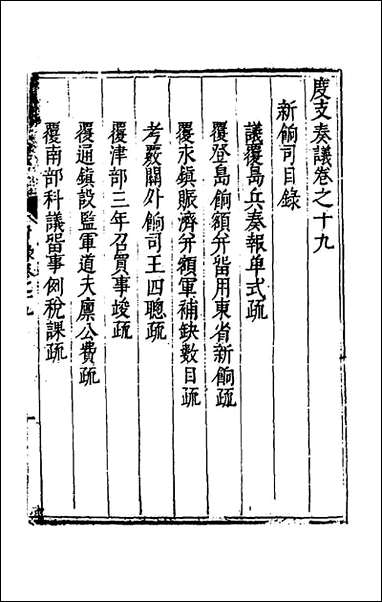 度支奏議卷之十九
新餉司目錄
議覆島兵奏報单式疏
覆登島餉額并畱用東省新餉疏
覆永鎮賑濟并額軍補缺數目疏
考覈關外餉司王四聰疏
覆津部三年召買事竣疏
覆通鎮設監軍道夫廪公費疏
覆南部科議畱事例稅課疏